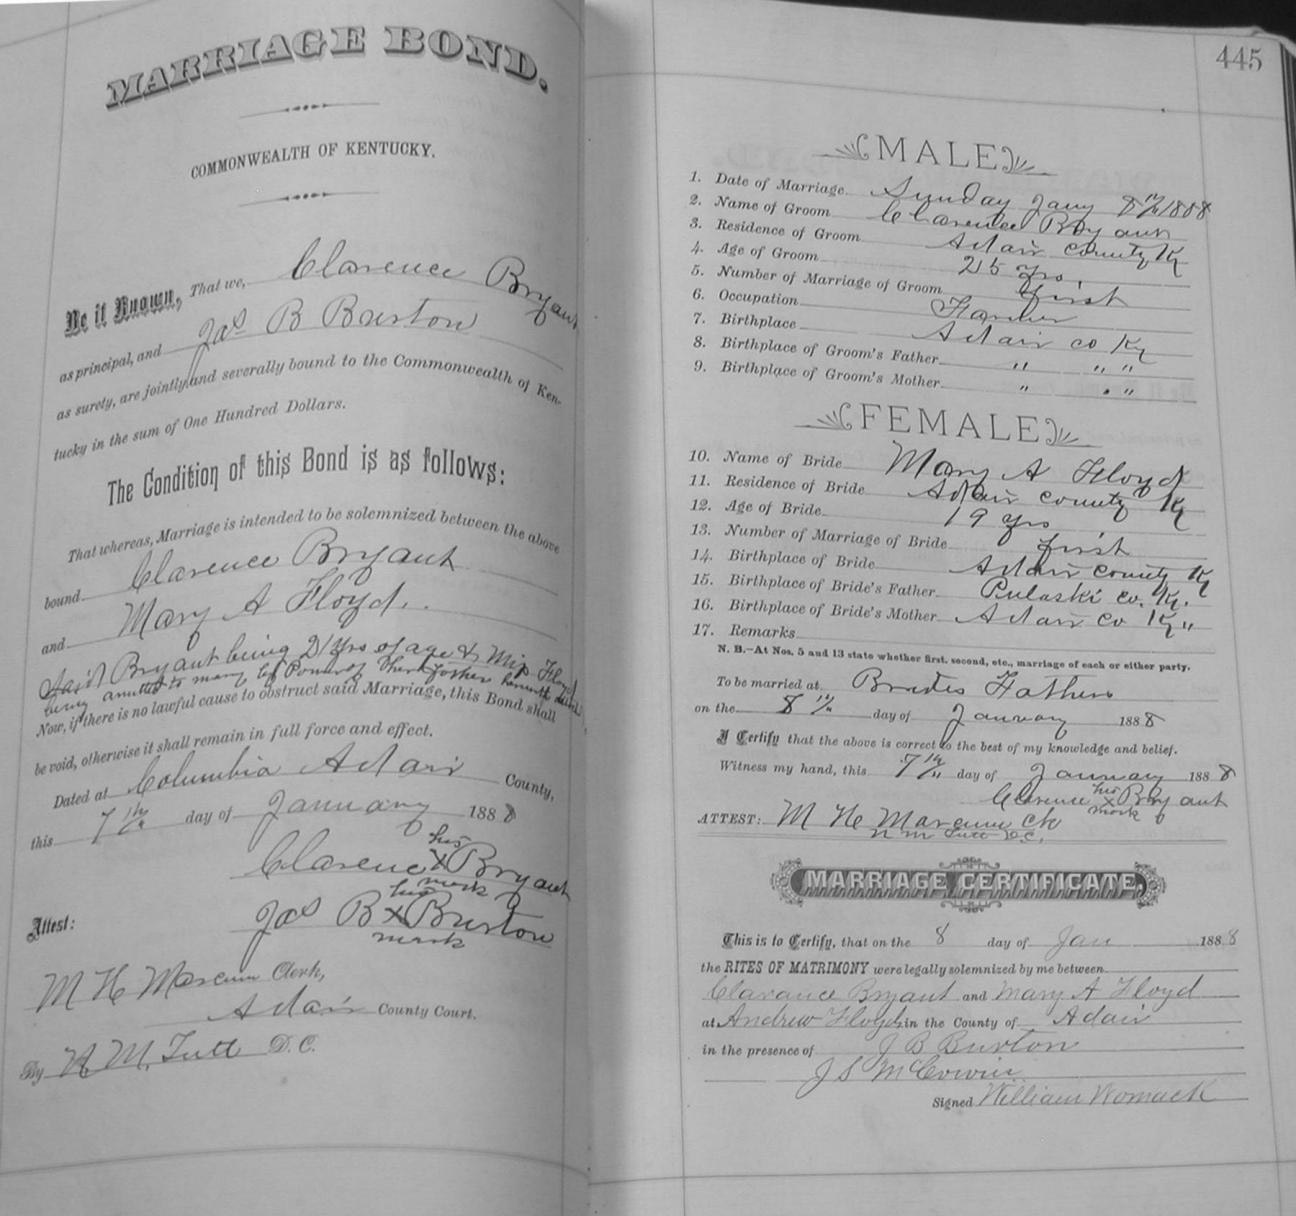 MARRIAGE BOND.
COMMONWEALTH OF KENTUCKY.
Be it Known, That we, Clarence Bryant
as principal, and Jas B Burton
as surety, are jointly and severally bound to the Commonwealth of Ken-
tucky in the sum of One Hundred Dollars.
The Condition of this Bond is as follows:
That whereas, Marriage is intended to be solemnized between the above
bound Clarence Bryant
and Mary A Floyd.
Said Bryant being 21 yrs of age & Miss Floyd
being to marry by of father
Now, if there is no lawful cause to obstruct said Marriage, this Bond shall
be void, otherwise it shall remain in full force and effect.
Dated at Columbia Adair County,
this 7th day of January 1888
Clarence his X mark Bryant
Attest: Jas B his X mark Burton
M H Marcum Clerk,
Adair County Court.
By N. M. Tutt D.C.
445
MALE
1. Date of Marriage Sunday Jany 8th 1888
2. Name of Groom Clarence Bryant
3. Residence of Groom Adair County Ky
4. Age of Groom 25 yrs.
5. Number of Marriage of Groom first
6. Occupation Farmer
7. Birthplace Adair co Ky
8. Birthplace of Groom's Father " " "
9. Birthplace of Groom's Mother " " "
FEMALE
10. Name of Bride Mary A Floyd
11. Residence of Bride Adair County Ky
12. Age of Bride 19 yrs
13. Number of Marriage of Bride first
14. Birthplace of Bride Adair County Ky
15. Birthplace of Bride's Father Pulaski Co. Ky.
16. Birthplace of Bride's Mother Adair Co Ky "
17. Remarks
N. B.—At Nos. 5 and 13 state whether first, second, etc., marriage of each or either party.
To be married at Brides Fathers
on the 8th day of January 1888
I Certify that the above is correct to the best of my knowledge and belief.
Witness my hand, this 7th day of January 1888
Clarence his X mark Bryant
ATTEST: M H Marcum Clk
N M Tutt D.C.
MARRIAGE CERTIFICATE.
This is to Certify, that on the 8 day of Jan 1888
the RITES OF MATRIMONY were legally solemnized by me between
Clarance Bryant and Mary A Floyd
at Andrew Floyds in the County of Adair
in the presence of J B Burton
J S
Signed William Womack